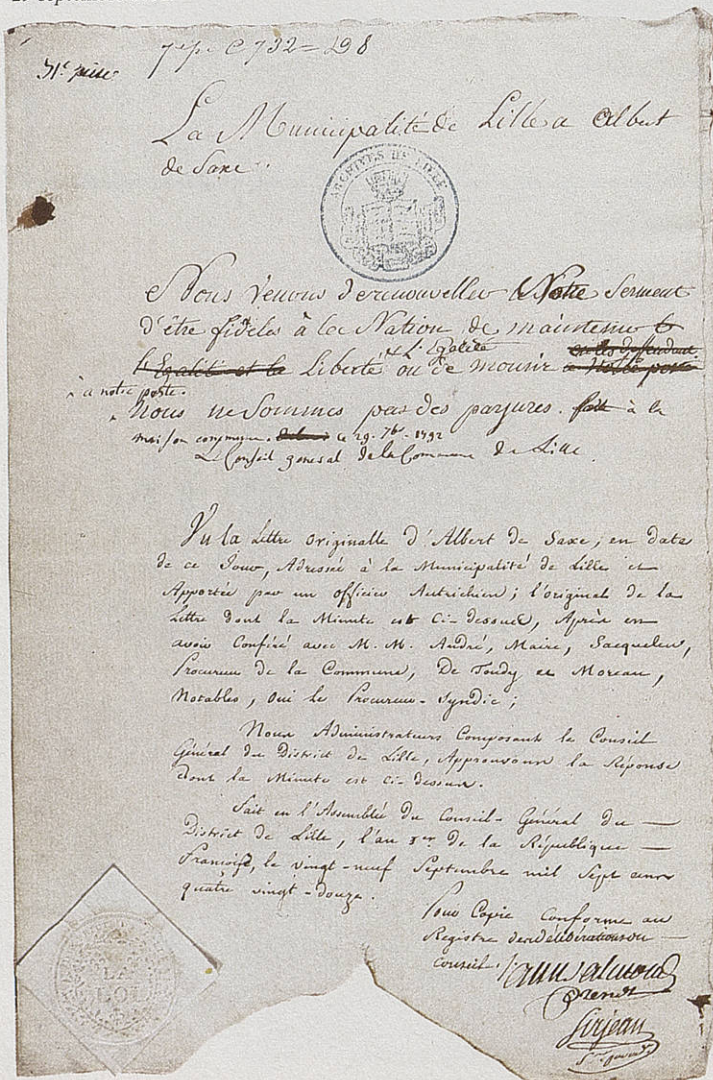 31e piece
La Municipalité de Lille a Albert
de Saxe.
ARCHIVES DE LILLE
Nous Venons de renouveller Notre Serment
d'être fideles à la Nation, de maintenir
l'Egalité et la Liberté et L'Egalité ou de mourir
à notre poste.
Nous ne Sommes pas des parjures. fait à la
maison commune. le 29. 7bre 1792
Le Conseil general de la Commune de Lille.
Vu la Lettre originalle d'Albert de Saxe, en date
de ce Jour, Adressée à la Municipalité de Lille et
Apportée par un officier Autrichien; l'original de la
Lettre dont la Minute est Ci-dessus, Après en
avoir Conféré avec M. M. André, Maire, Sacqueleu,
Procureur de la Commune, De Toudy et Moreau,
Notables, Oui le Procureur-Syndic;
Nous Administrateurs Composant le Conseil
Général du District de Lille, Approuvons la Réponse
dont la Minute est Ci-dessus.
Fait en l'Assemblée du Conseil-Général du
District de Lille, l'an 1er de la République
Françoise, le vingt-neuf Septembre mil Sept cens
quatre vingt-douze.
Pour Copie Conforme au
Registre des Délibérations du
Conseil.
Sirjean
LA
LOI